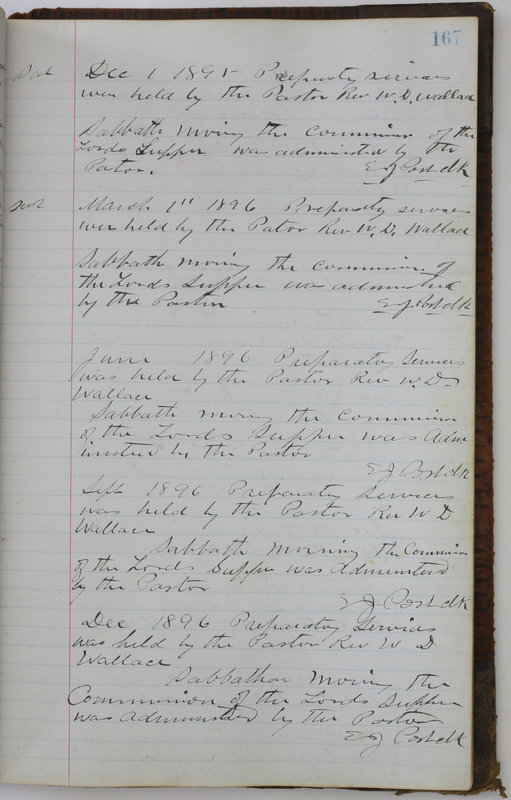 167
Sat Dec 1 1895 Preparatry services
were held by the Pastor Rev W.D. Wallace
Sabbath moring the commuion of the
Lords Supper was administed by the
Pator. E J Post clk
Sat March 1st 1896 Preparatry services
wer held by the Pator Rev W.D. Wallace
Sabbath moring the commuion of
the Lords Supper was admisted
by the Paster E J Post clk
June 1896 Preparatory Services
was held by the Pastor Rev W. D
Wallace
Sabbath moring the Communion
of the Lords Supper was Adm
inisted by the Pastor
E J Post clk
Sept 1896 Preparatry Services
was held by the Pastor Rev W D
Wallace
Sabbath morining the Commuion
of the Lords Supper was Administerd
by the Pastor
E J Post clk
Dec 1896 Preparatory Services
was held by the Pastor Rev W D
Wallace
Sabbathar moring the
Communion of the Lords Supper
was administed by the Pastor
E J Post clk